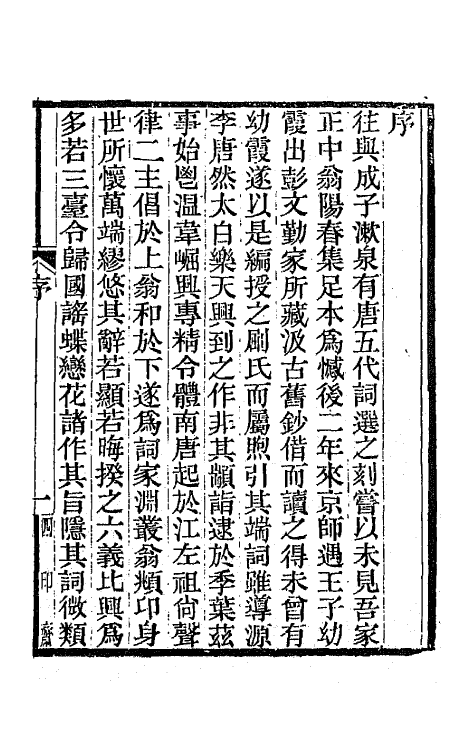 序
往與成子漱泉有唐五代詞選之刻嘗以未見吾家
正中翁陽春集足本爲憾後二年來京師遇王子幼
霞出彭文勤家所藏汲古舊鈔借而讀之得未曾有
幼霞遂以是編授之刷氏而屬煦引其端詞雖導源
李唐然太白樂天興到之作非其顓詣逮於季葉茲
事始鬯溫韋崛興專精令體南唐起於江左祖尚聲
律二主倡於上翁和於下遂爲詞家淵叢翁頫卬身
世所懷萬端繆悠其辭若顯若晦揆之六義比興爲
多若三臺令歸國謠蝶戀花諸作其旨隱其詞微類
序
一
四印齋